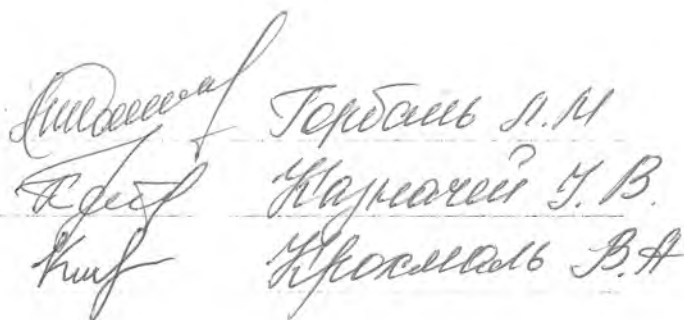 Горбань Л.М
Казначей І. В.
Крохмаль В.А